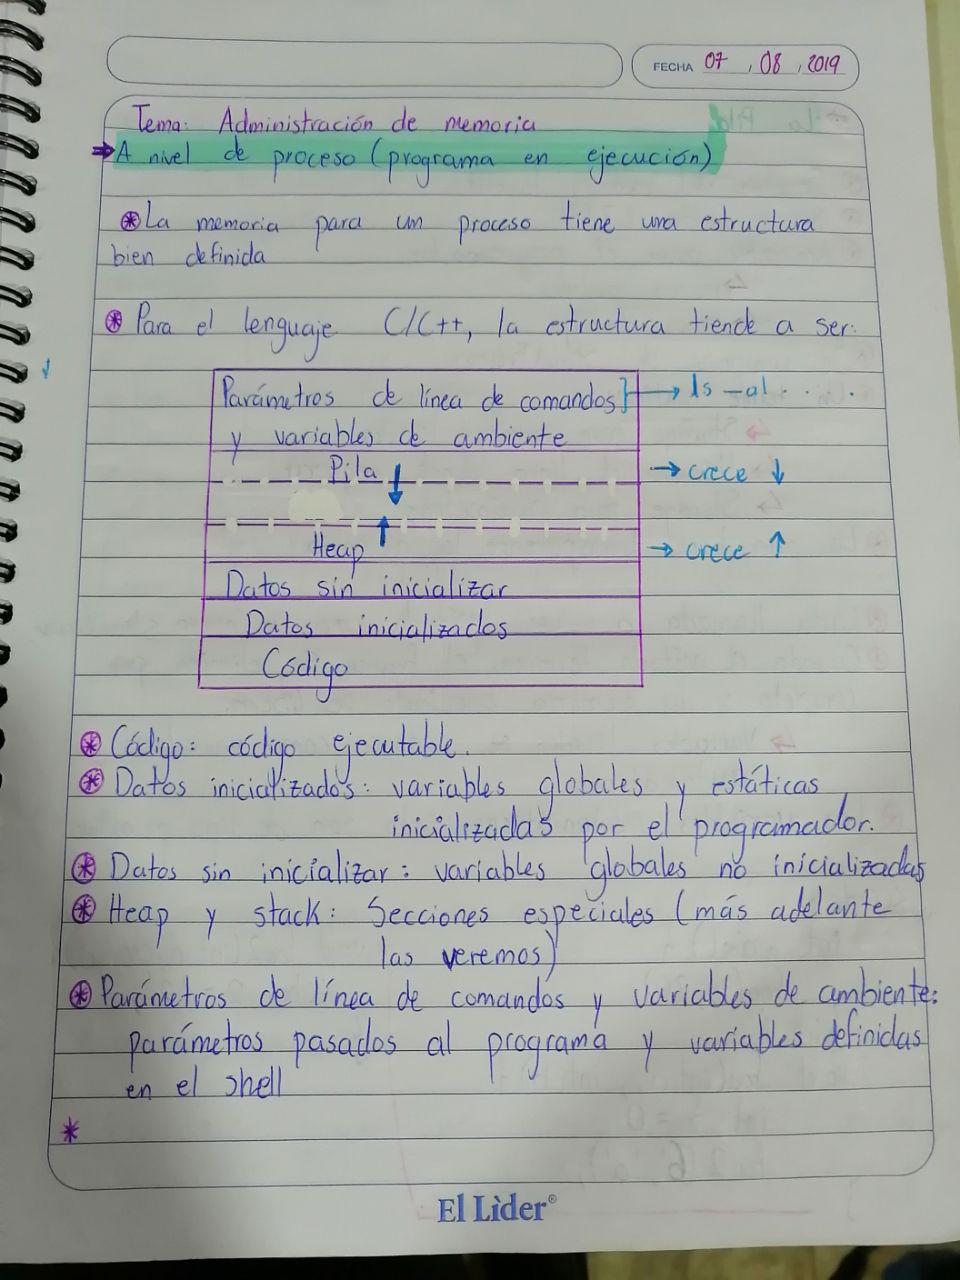 FECHA 07 , 08 , 2019
Tema: Administración de memoria
→ A nivel de proceso (programa en ejecución)
⊛ La memoria para un proceso tiene una estructura
bien definida
⊛ Para el lenguaje C/C++, la estructura tiende a ser:
Parámetros de línea de comandos } → ls -al . . .
y variables de ambiente
Pila ↓ → crece ↓
Heap ↑ → crece ↑
Datos sin inicializar
Datos inicializados
Código
⊛ Código: código ejecutable.
⊛ Datos inicializados: variables globales y estáticas
inicializadas por el programador.
⊛ Datos sin inicializar: variables globales no inicializadas
⊛ Heap y stack: Secciones especiales (más adelante
las veremos)
⊛ Parámetros de línea de comandos y variables de ambiente:
parámetros pasados al programa y variables definidas
en el shell
*
El Lìder®